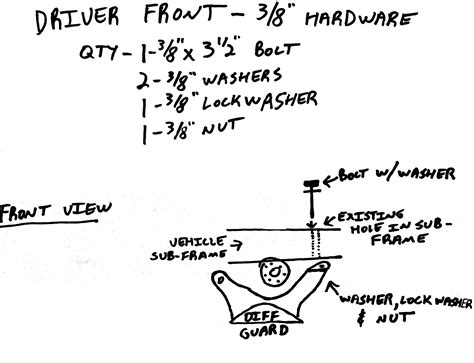 DRIVER FRONT - 3/8" HARDWARE
QTY - 1-3/8" x 3 1/2" BOLT
2-3/8" WASHERS
1-3/8" LOCKWASHER
1-3/8" NUT
BOLT W/WASHER
FRONT VIEW
EXISTING
HOLE IN SUB-
FRAME
VEHICLE
SUB-FRAME
WASHER, LOCKWASHER
& NUT
DIFF
GUARD